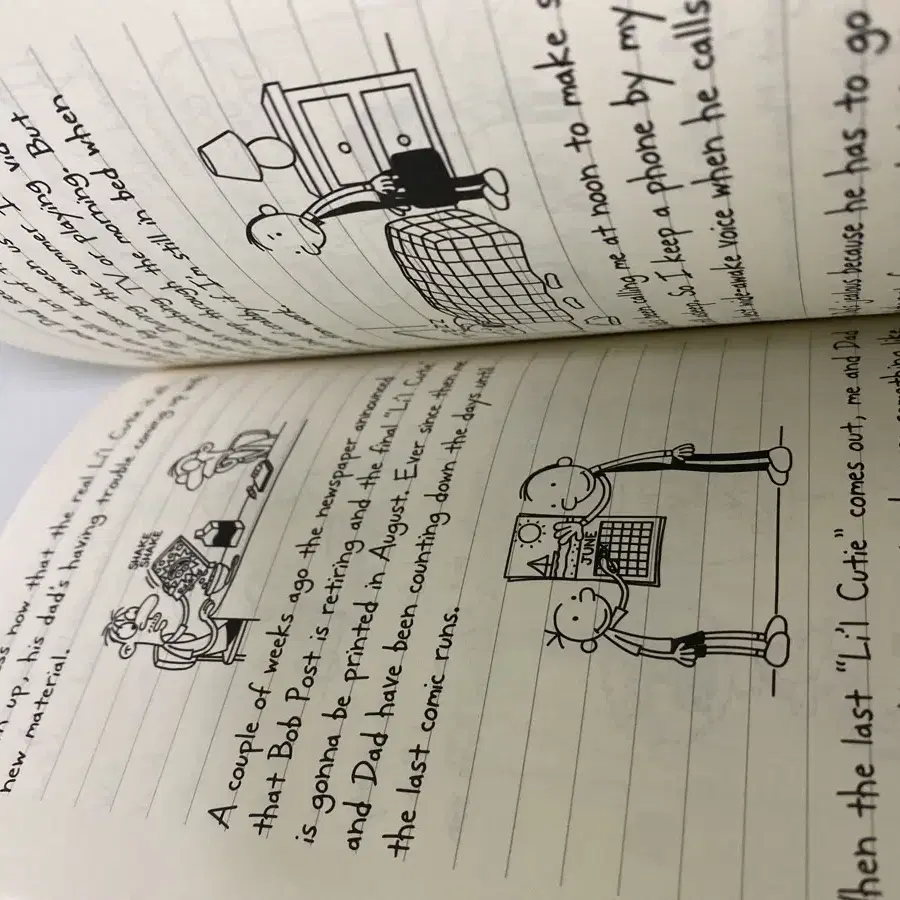 now that the real Li'l Cutie is all
up, his dad's having trouble coming up
new material.
SHAKE
SHAKE
A couple of weeks ago the newspaper announced
that Bob Post is retiring and the final "Li'l Cutie"
is gonna be printed in August. Ever since then me
and Dad have been counting down the days until
the last comic runs.
JUNE
When the last "Li'l Cutie" comes out, me and Dad
something like
Dad see
a lot of
between us
the summer I
watching TV or playing vid
through the morning. But
if I'm still in bed when
work.
been calling me at noon to make s
So I keep a phone by my
wide-awake voice when he calls
jealous because he has to go